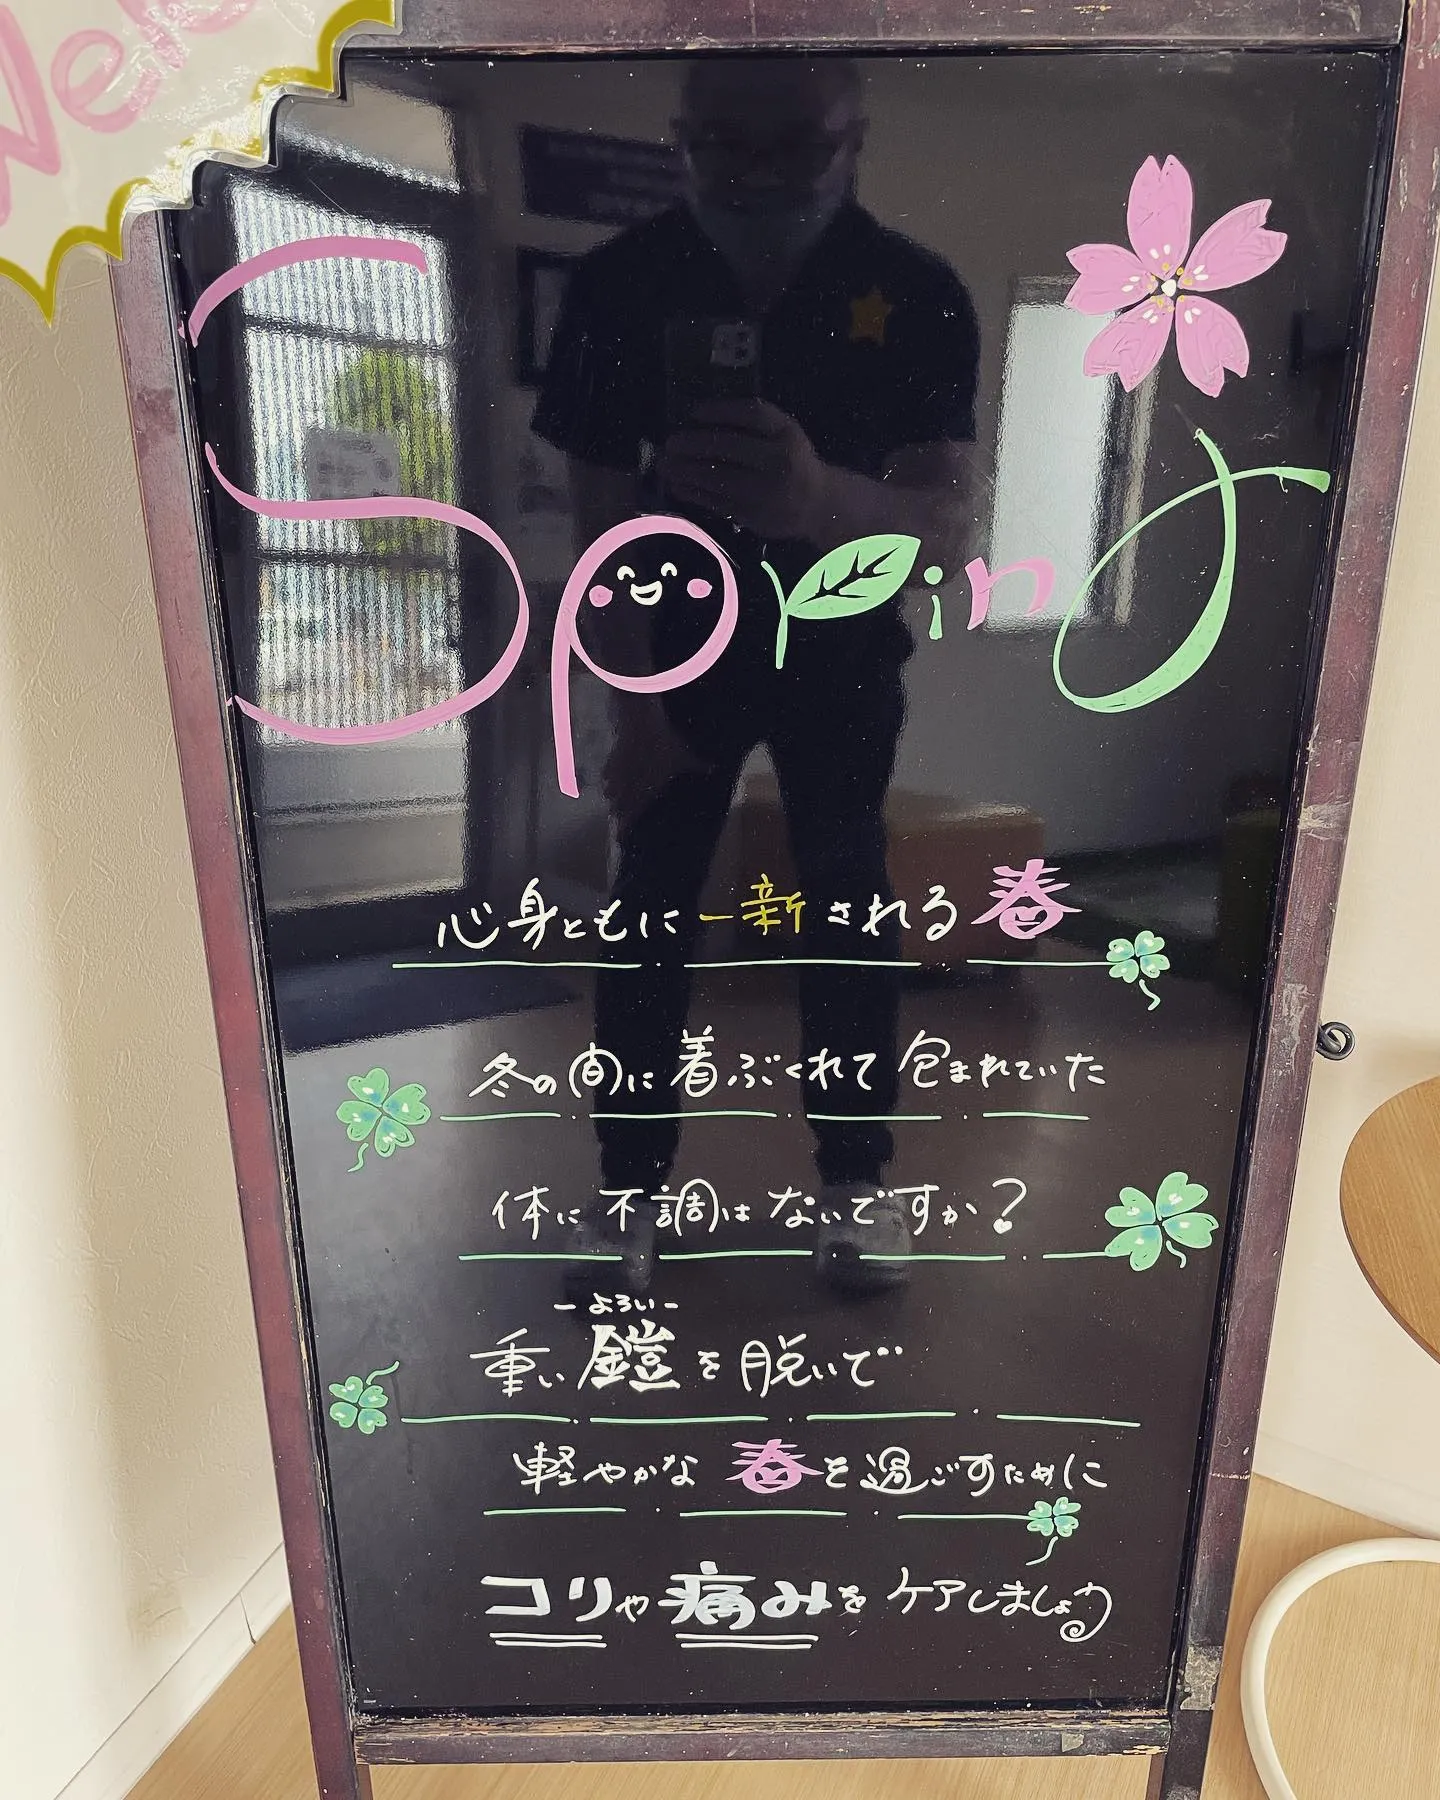 Wel
Spring
心身ともに一新される春
冬の間に着ぶくれて包まれていた
体に不調はないですか?
-よろい-
重い鎧を脱いで
軽やかな春を過ごすために
コリや痛みをケアしましょう